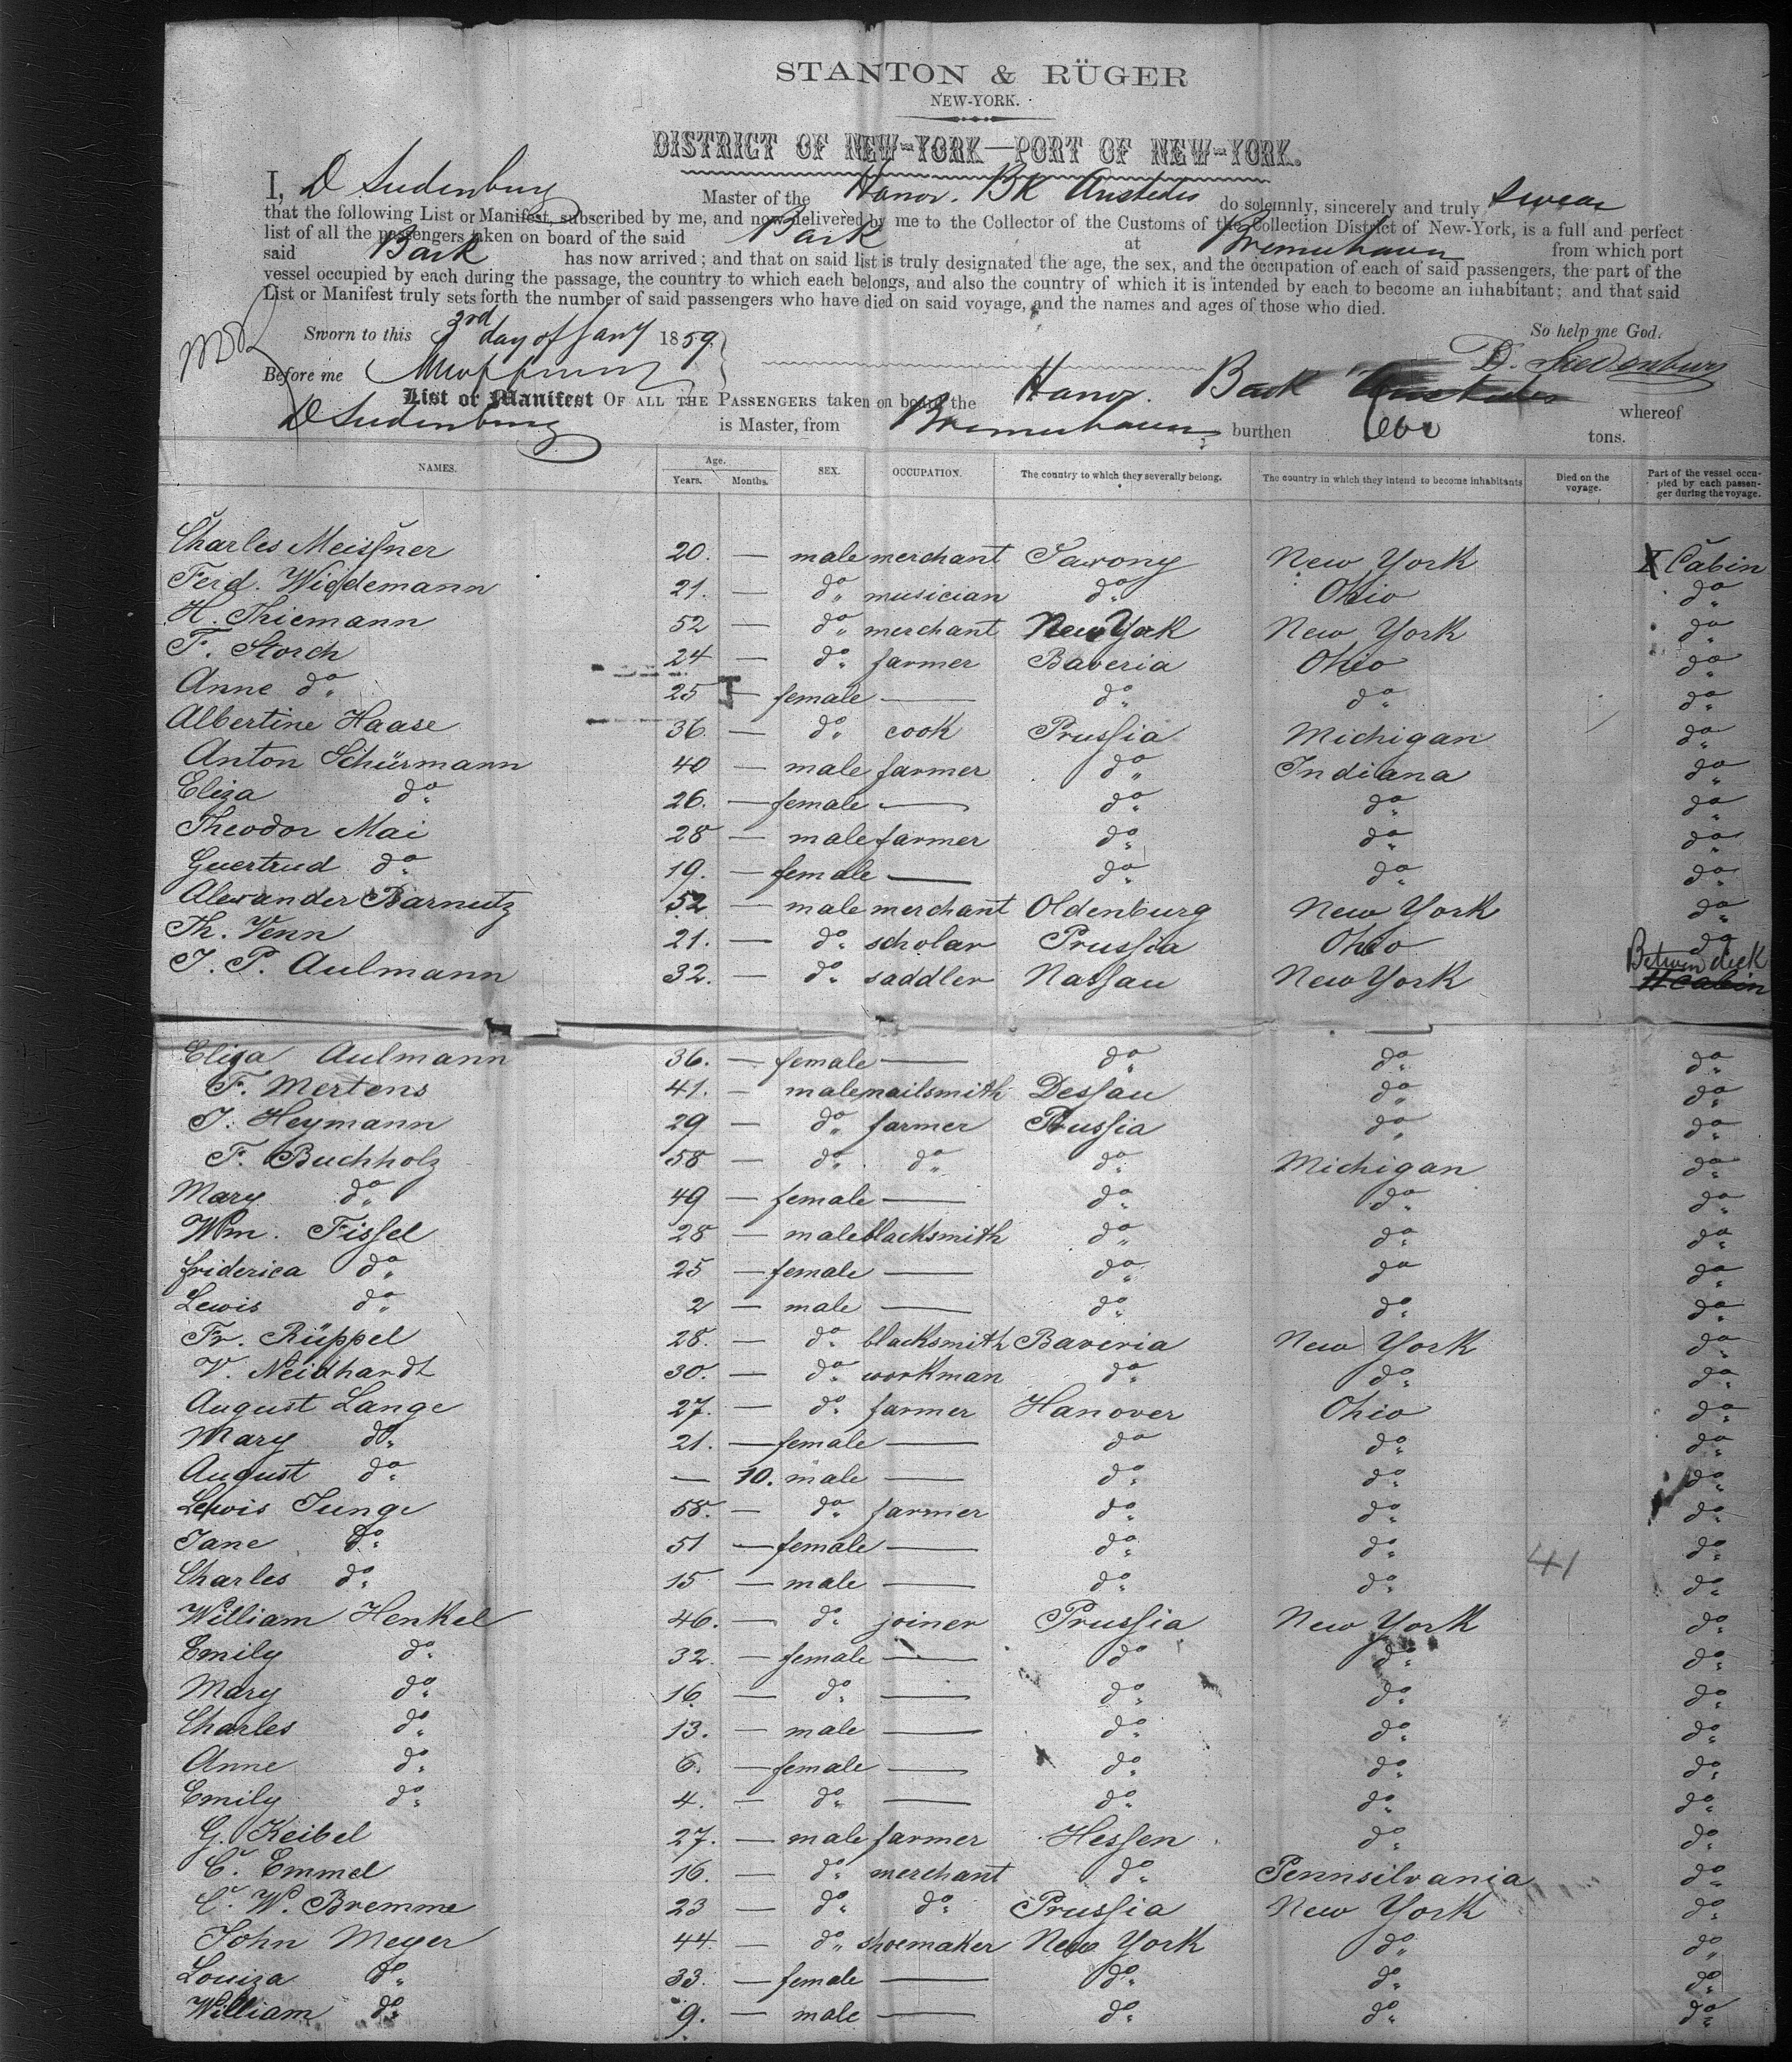 STANTON & RÜGER
NEW-YORK.
DISTRICT OF NEW-YORK—PORT OF NEW-YORK.
I, D Sudenburg Master of the Hanov. Bk Aristides do solemnly, sincerely and truly swear
that the following List or Manifest, subscribed by me, and now delivered by me to the Collector of the Customs of the Collection District of New-York, is a full and perfect
list of all the passengers taken on board of the said Bark at Bremerhaven from which port
said Bark has now arrived; and that on said list is truly designated the age, the sex, and the occupation of each of said passengers, the part of the
vessel occupied by each during the passage, the country to which each belongs, and also the country of which it is intended by each to become an inhabitant; and that said
List or Manifest truly sets forth the number of said passengers who have died on said voyage, and the names and ages of those who died.
Sworn to this 3rd day of Jany 1859 So help me God.
Before me D. Siedenburg
List or Manifest OF ALL THE PASSENGERS taken on board the Hanov. Bark Aristides whereof
D Sudenburg is Master, from Bremerhaven burthen tons.
NAMES. Age. Years. Months. SEX. OCCUPATION. The country to which they severally belong. The country in which they intend to become inhabitants Died on the voyage. Part of the vessel occupied by each passenger during the voyage.
Charles Meissner 20. — male merchant Saxony New York Cabin
Ferd. Widdemann 21. — do musician do Ohio do
H. Thiemann 52 — do merchant New York New York do
F. Storch 24 — do farmer Baveria Ohio do
Anne do 25 — female — do do do
Albertine Haase 36. — do cook Prussia Michigan do
Anton Schürmann 40 — male farmer do Indiana do
Eliza do 26. — female — do do do
Theodor Mai 28 — male farmer do do do
Guertrud do 19. — female — do do do
Alexander Barnutz 52 — male merchant Oldenburg New York do
Th. Venn 21. — do scholar Prussia Ohio do
J. P. Aulmann 32. — do saddler Nassau New York Betwen deck
Eliza Aulmann 36. — female — do do do
F. Mertens 41. — male nailsmith Dessau do do
J. Heymann 29 — do farmer Prussia do do
F. Buchholz 58 — do do do Michigan do
Mary do 49 — female — do do do
Wm. Fissel 28 — male blacksmith do do do
friderica do 25 — female — do do do
Lewis do 2 — male — do do do
Fr. Rüppel 28. — do blacksmith Baveria New York do
V. Neidhardt 30. — do workman do do do
August Lange 27. — do farmer Hanover Ohio do
Mary do 21. — female — do do do
August do — 10. male — do do do
Lewis Junge 58. — do farmer do do do
Jane do 51 — female — do do do
41
Charles do 15 — male — do do do
William Henkel 46. — do joiner Prussia New York do
Emily do 32. — female — do do do
Mary do 16. — do — do do do
Charles do 13. — male — do do do
Anne do 6. — female — do do do
Emily do 4. — do — do do do
G. Keibel 27. — male farmer Hessen do do
C. Emmel 16. — do merchant do Pennsilvania do
C. W. Bremme 23 — do do Prussia New York do
John Meyer 44 — do shoemaker New York do do
Louiza do 33. — female — do do do
William do 9. — male — do do do